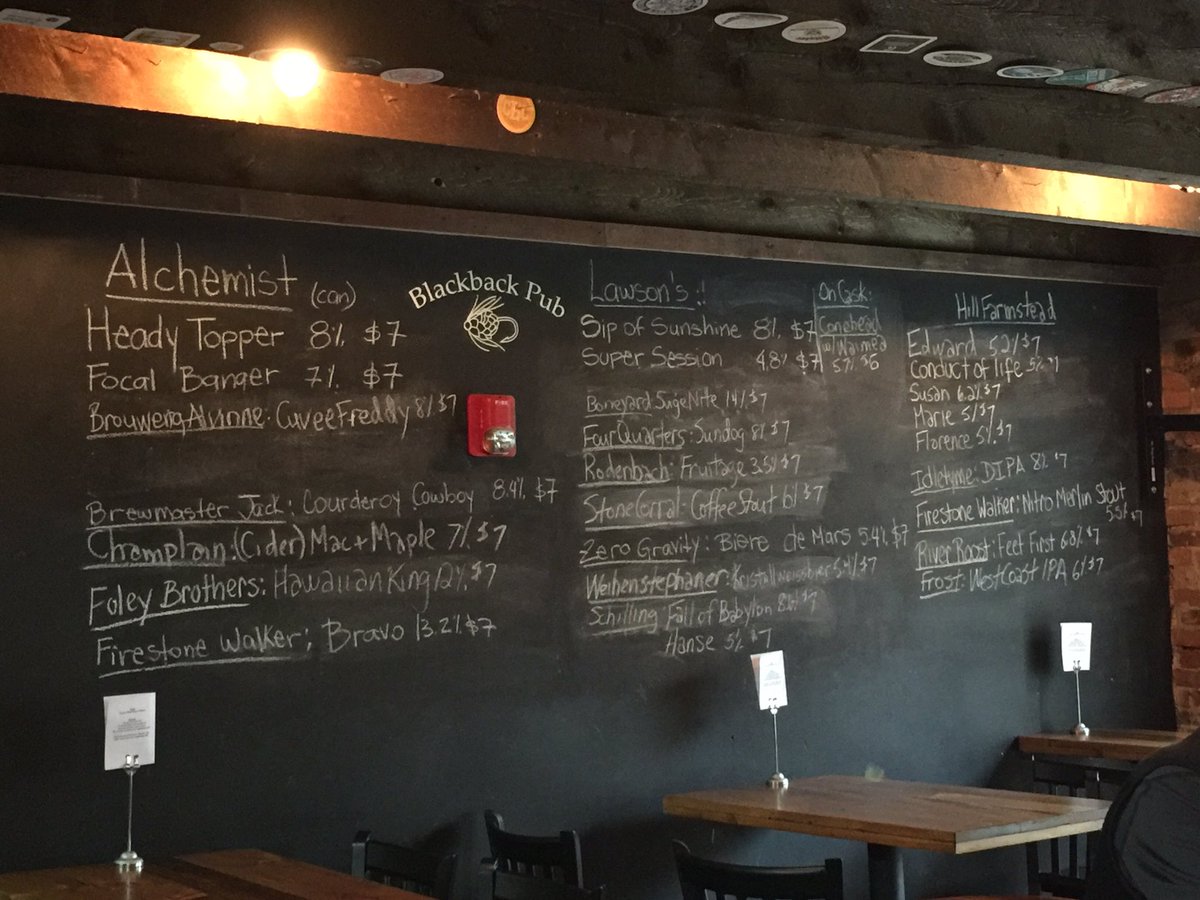 Alchemist (can)
Heady Topper 8% $7
Focal Banger 7% $7
Brouwerij Alvinne: Cuvee Freddy 8% $7
Brewmaster Jack: Courderoy Cowboy 8.4% $7
Champlain: (Cider) Mac + Maple 7% $7
Foley Brothers: Hawaiian King 12% $7
Firestone Walker: Bravo 13.2% $7
Blackback Pub
FIRE
Lawson's!!
Sip of Sunshine 8% $7
Super Session 4.8% $7
Boneyard SugeNite 14% $7
Four Quarters: Sundog 8% $7
Rodenbach: Fruitage 3.5% $7
Stone Corral: Coffee Stout 6% $7
Zero Gravity: Biere de Mars 5.4% $7
Weihenstephaner: Kristallweissbier 5.4% $7
Schilling: Fall of Babylon 8% $7
Hanse 5% $7
On Cask:
Conehead
w/ Waimea
5.7% $6
Hill Farmstead
Edward 5.2% $7
Conduct of life 5% $7
Susan 6.2% $7
Marie 5% $7
Florence 5% $7
Idletyme: DIPA 8% $7
Firestone Walker: Nitro Merlin Stout
5.5% $7
River Roost: Feet First 6.8% $7
Frost: West Coast IPA 6% $7